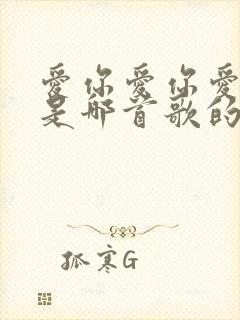 爱你爱你爱
是那首歌的
孤寒G